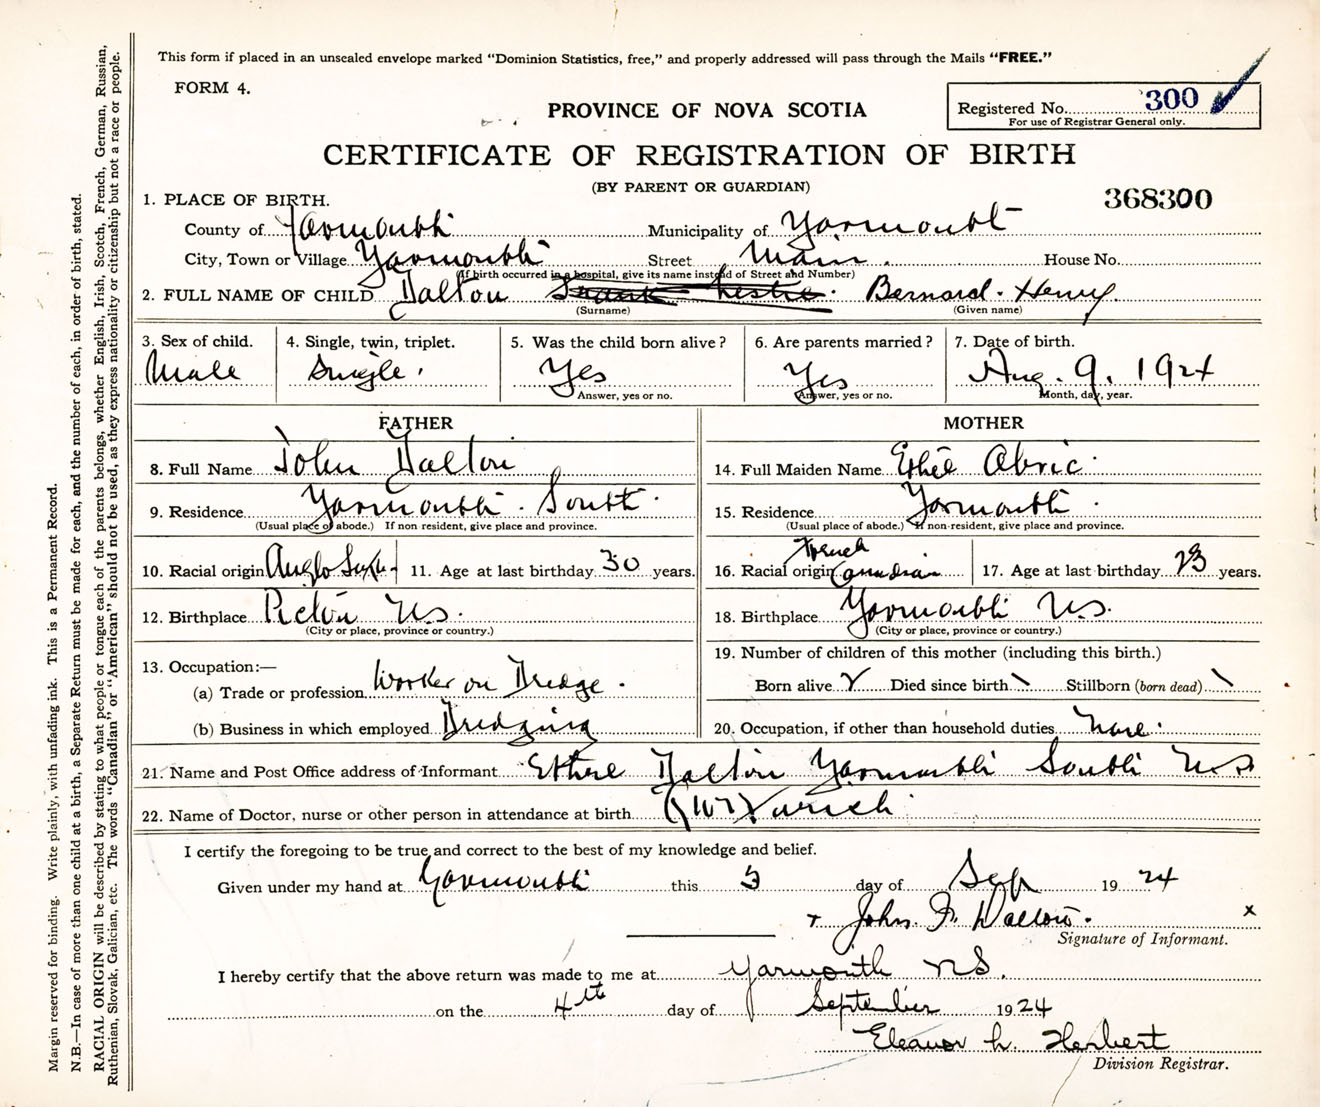 This form if placed in an unsealed envelope marked “Dominion Statistics, free,” and properly addressed will pass through the Mails “FREE.”
FORM 4.
Registered No. 300
For use of Registrar General only.
PROVINCE OF NOVA SCOTIA
CERTIFICATE OF REGISTRATION OF BIRTH
(BY PARENT OR GUARDIAN)
368300
1. PLACE OF BIRTH.
County of Yarmouth Municipality of Yarmouth
City, Town or Village Yarmouth Street Main House No.
(If birth occurred in a hospital, give its name instead of Street and Number)
2. FULL NAME OF CHILD Dalton Frank Leslie Bernard Henry
(Surname) (Given name)
3. Sex of child. Male
4. Single, twin, triplet. Single
5. Was the child born alive? Yes
Answer, yes or no.
6. Are parents married? Yes
Answer, yes or no.
7. Date of birth. Aug. 9, 1924
Month, day, year.
FATHER
8. Full Name John Dalton
9. Residence Yarmouth South
(Usual place of abode.) If non resident, give place and province.
10. Racial origin Anglo Sax 11. Age at last birthday 30 years.
12. Birthplace Pictou N.S.
(City or place, province or country.)
13. Occupation:—
(a) Trade or profession Worker on Dredge
(b) Business in which employed Dredging
MOTHER
14. Full Maiden Name
15. Residence Yarmouth
(Usual place of abode.) If non-resident, give place and province.
16. Racial origin French Canadian 17. Age at last birthday 23 years.
18. Birthplace Yarmouth N.S.
(City or place, province or country.)
19. Number of children of this mother (including this birth.)
Born alive Died since birth \ Stillborn (born dead) \
20. Occupation, if other than household duties None
21. Name and Post Office address of Informant Ethel Dalton Yarmouth South N.S
22. Name of Doctor, nurse or other person in attendance at birth
I certify the foregoing to be true and correct to the best of my knowledge and belief.
Given under my hand at Yarmouth this 3 day of Sep 1924
x John F. Dalton. x
Signature of Informant.
I hereby certify that the above return was made to me at Yarmouth N.S.
on the 4th day of September 1924
Eleanor L. Herbert
Division Registrar.
Margin reserved for binding. Write plainly, with unfading ink. This is a Permanent Record.
N.B.—In case of more than one child at a birth, a Separate Return must be made for each, and the number of each, in order of birth, stated.
RACIAL ORIGIN will be described by stating to what people or tongue each of the parents belongs, whether English, Irish, Scotch, French, German, Russian,
Ruthenian, Slovak, Galician, etc. The words “Canadian” or “American” should not be used, as they express nationality or citizenship but not a race or people.